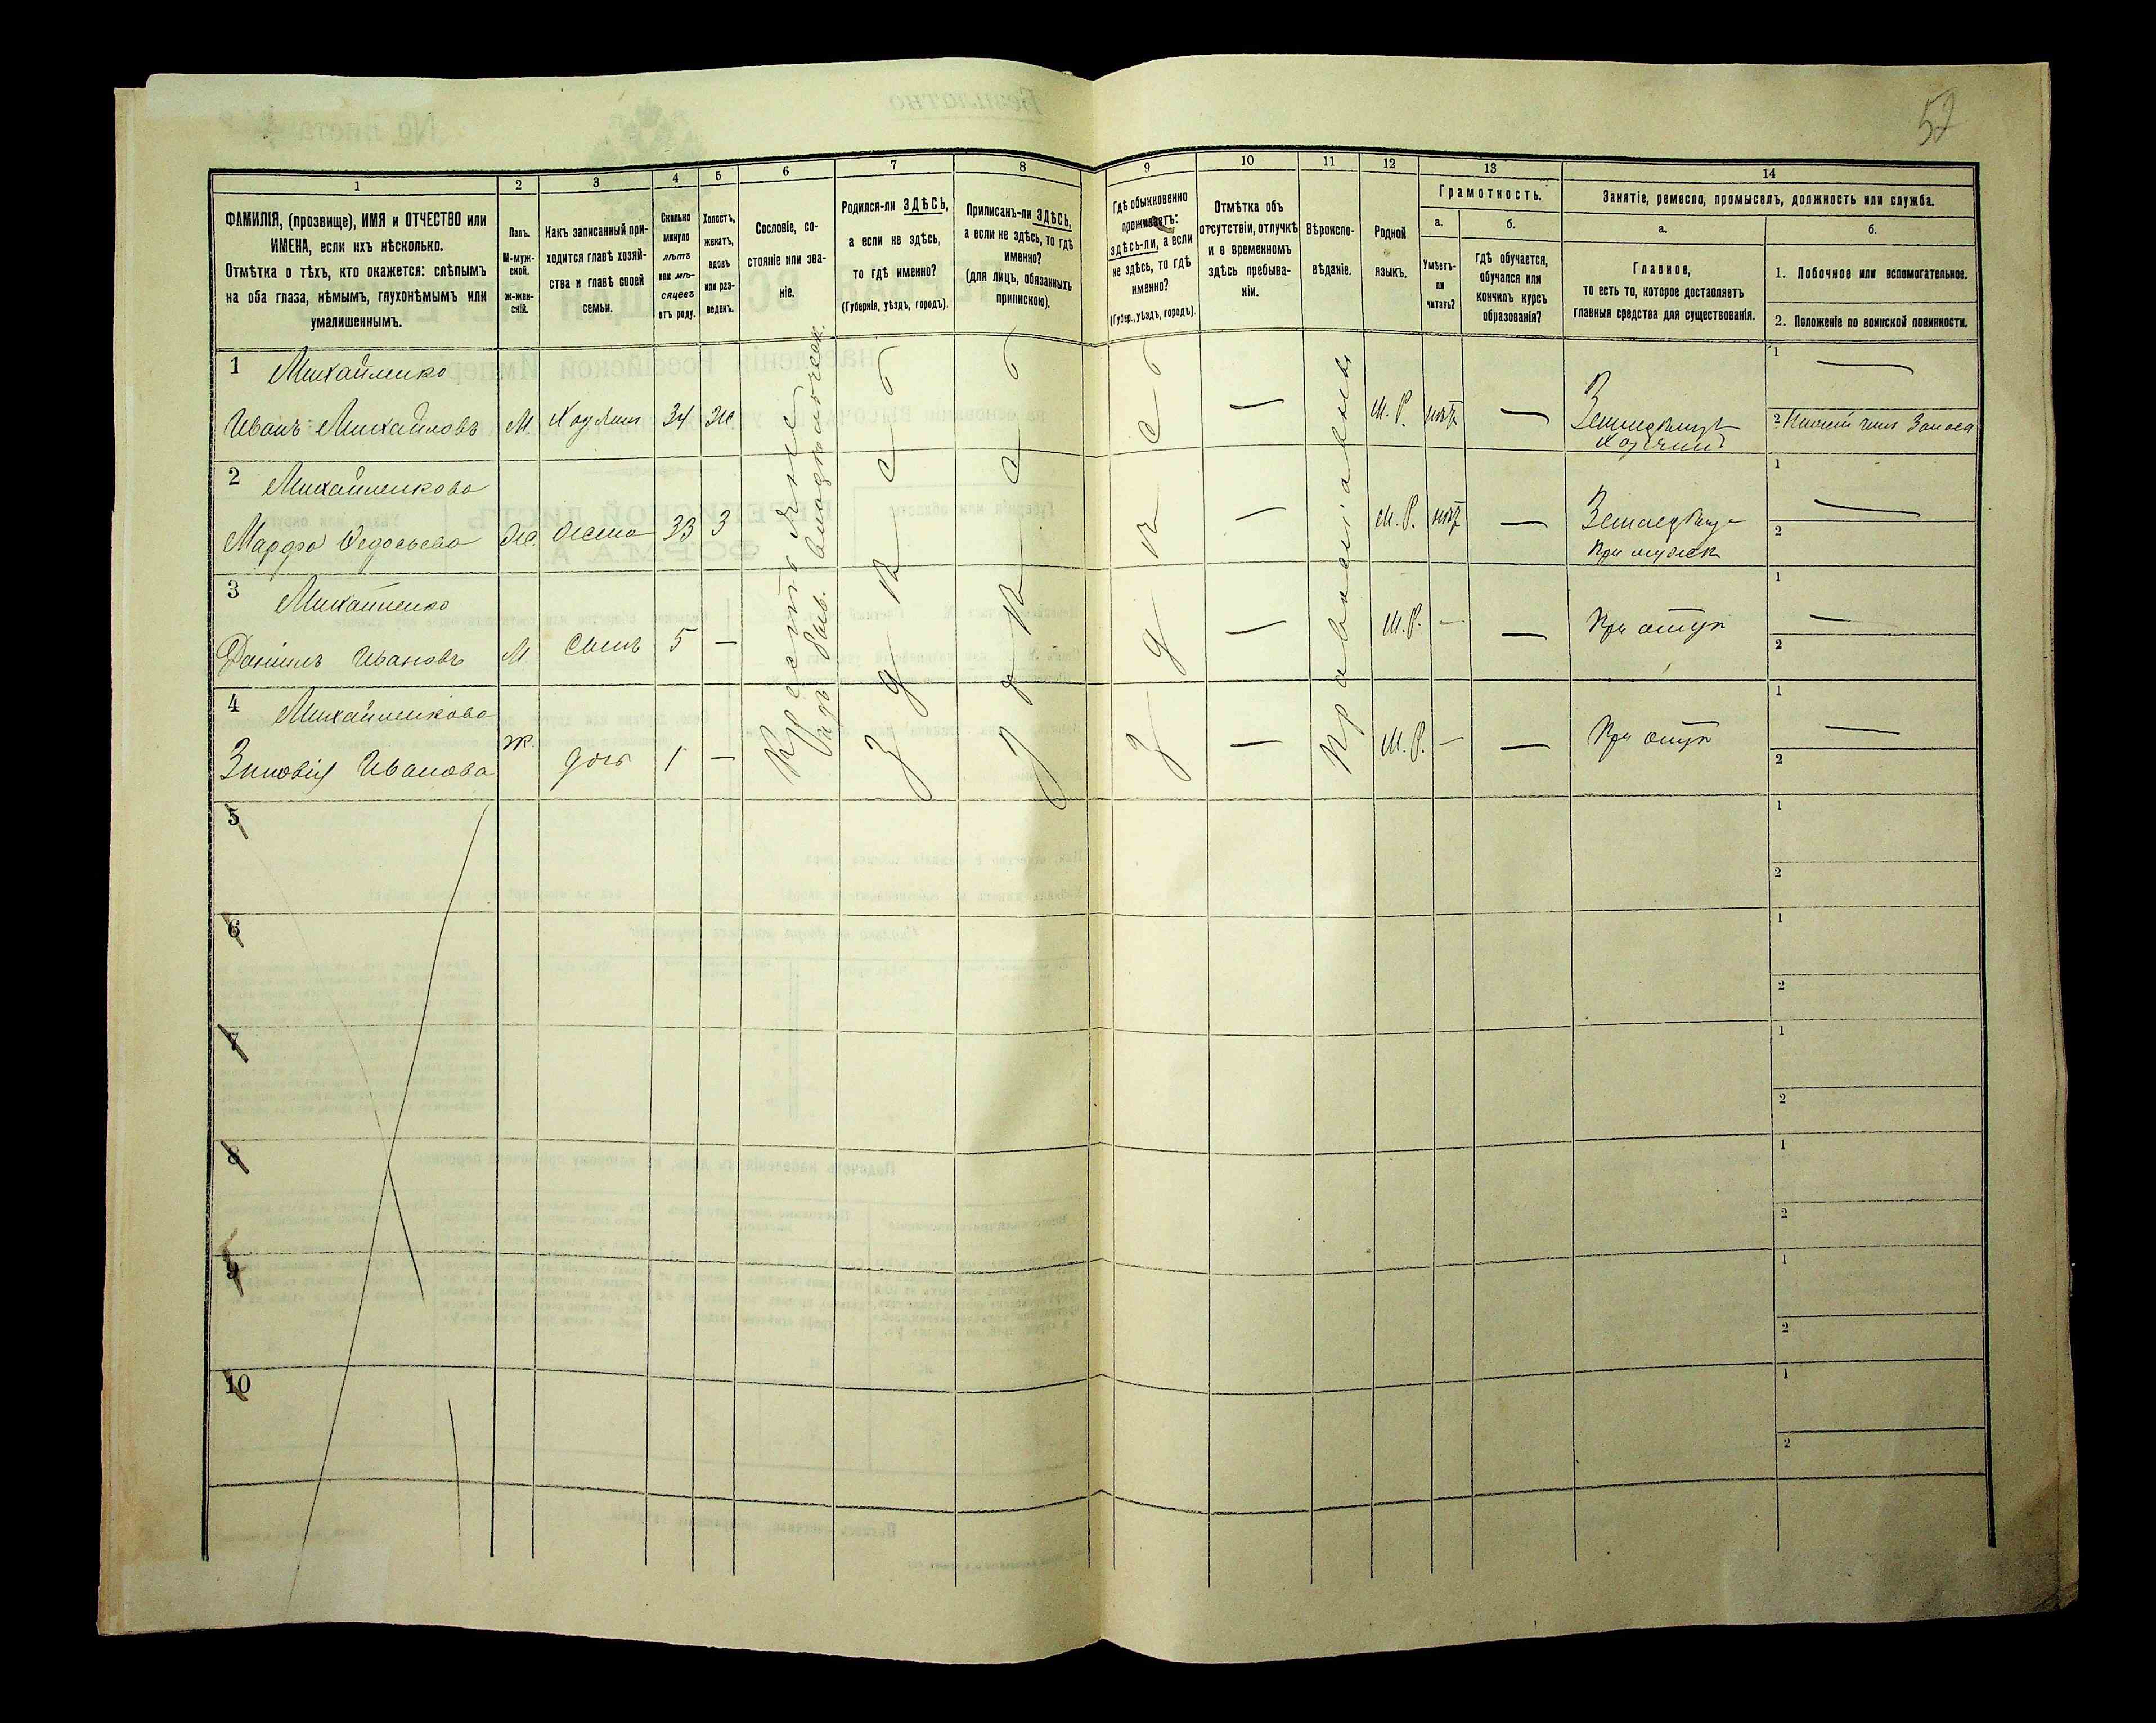 52
1 2 3 4 5 6 7 8 9 10 11 12 13 14
ФАМИЛІЯ, (прозвище), ИМЯ и ОТЧЕСТВО или
ИМЕНА, если ихъ нѣсколько.
Отмѣтка о тѣхъ, кто окажется: слѣпымъ
на оба глаза, нѣмымъ, глухонѣмымъ или
умалишеннымъ.
Полъ.
М-муж-
ской.
ж-жен-
скій.
Какъ записанный при-
ходится главѣ хозяй-
ства и главѣ своей
семьи.
Сколько
минуло
лѣтъ
или мѣ-
сяцевъ
отъ роду.
Холостъ,
женатъ,
вдовъ
или раз-
веденъ.
Сословіе, со-
стояніе или зва-
ніе.
Родился-ли ЗДѢСЬ,
а если не здѣсь,
то гдѣ именно?
(Губернія, уѣздъ, городъ).
Приписанъ-ли ЗДѢСЬ,
а если не здѣсь, то гдѣ
именно?
(для лицъ, обязанныхъ
припискою).
Гдѣ обыкновенно
проживаетъ:
здѣсь-ли, а если
не здѣсь, то гдѣ
именно?
(Губер., уѣздъ, городъ).
Отмѣтка объ
отсутствіи, отлучкѣ
и о временномъ
здѣсь пребыва-
ніи.
Вѣроиспо-
вѣданіе.
Родной
языкъ.
Грамотность.
а.
Умѣетъ-
ли
читать?
б.
гдѣ обучается,
обучался или
кончилъ курсъ
образованія?
Занятіе, ремесло, промыселъ, должность или служба.
а.
Главное,
то есть то, которое доставляетъ
главныя средства для существованія.
б.
1. Побочное или вспомогательное.
2. Положеніе по воинской повинности.
1 Михайленко
Иванъ Михайловъ М Хозяинъ 34 Ж М. Р. нѣтъ Земледѣлецъ
Хозяинъ
1
2 Нижній чинъ Запаса
2 Михайленкова
Марфа Федосьева Ж. Жена 33 З М. Р. нѣтъ Земледѣлица
При мужѣ
1
2
3 Михайленко
Даніилъ Ивановъ М Сынъ 5 — М. Р. — При отцѣ
1
2
4 Михайленкова
Зиновія Иванова Ж. дочь 1 — М. Р. — При отцѣ
1
2
Крестьяне
Здѣсь
Здѣсь
Здѣсь
Православные
5 1
2
6 1
2
7 1
2
8 1
2
9 1
2
10 1
2